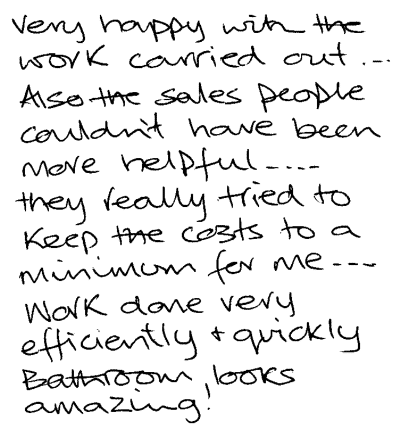 Very happy with the
work carried out...
Also the sales people
couldn't have been
more helpful....
they really tried to
keep the costs to a
minimum for me---
Work done very
efficiently + quickly
Bathroom, looks
amazing!